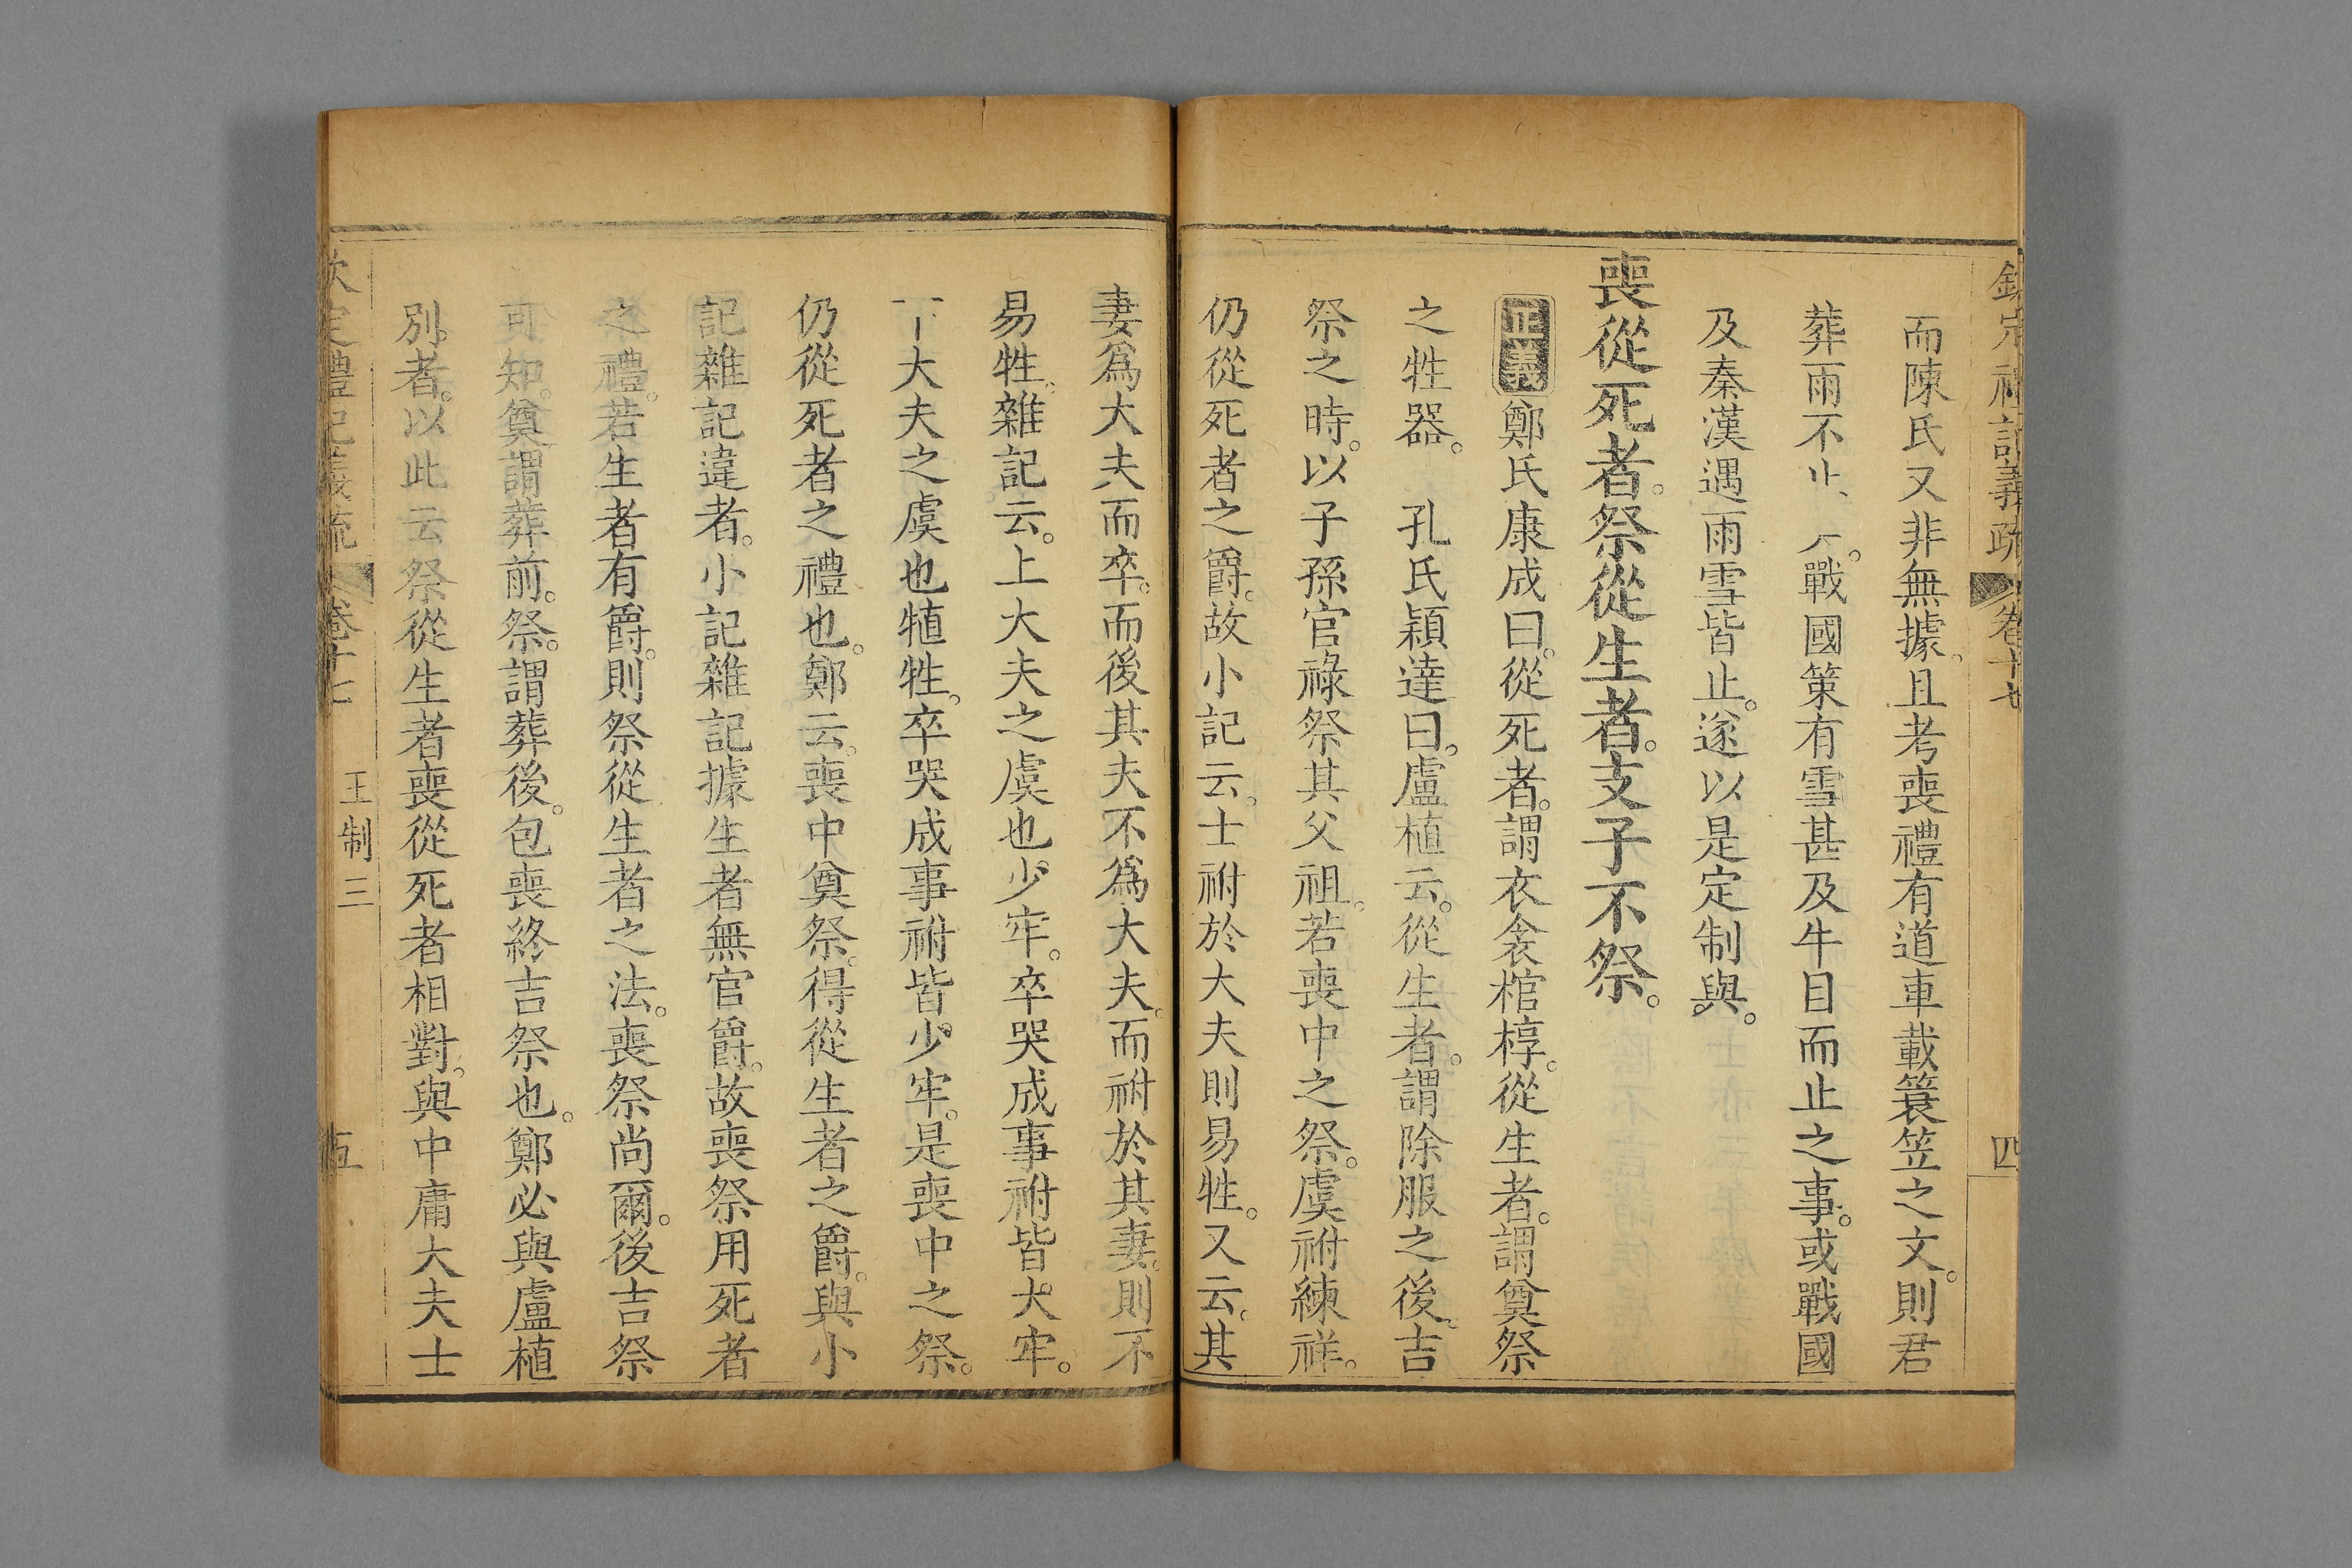 欽定禮記義疏 卷十七 四
而陳氏又非無據。且考喪禮有道車載簑笠之文。則君
葬雨不止。戰國策有雪甚及牛目而止之事。或戰國
及秦漢遇雨雪皆止。遂以是定制與。
喪從死者。祭從生者。支子不祭。
正義 鄭氏康成曰。從死者。謂衣衾棺椁。從生者。謂奠祭
之牲器。 孔氏穎達曰。盧植云。從生者。謂除服之後。吉
祭之時。以子孫官祿祭其父祖。若喪中之祭。虞祔練祥。
仍從死者之爵。故小記云。士祔於大夫則易牲。又云。其
妻爲大夫而卒。而後其夫不爲大夫。而祔於其妻。則不
易牲。雜記云。上大夫之虞也少牢。卒哭成事祔皆大牢。
下大夫之虞也犆牲。卒哭成事祔皆少牢。是喪中之祭。
仍從死者之禮也。鄭云。喪中奠祭。得從生者之爵。與小
記雜記違者。小記雜記據生者無官爵。故喪祭用死者
之禮。若生者有爵。則祭從生者之法。喪祭尚爾。後吉祭
可知。奠謂葬前。祭。謂葬後。包喪終吉祭也。鄭必與盧植
別者。以此云祭從生者喪從死者相對。與中庸大夫士
欽定禮記義疏 卷十七 王制三 五